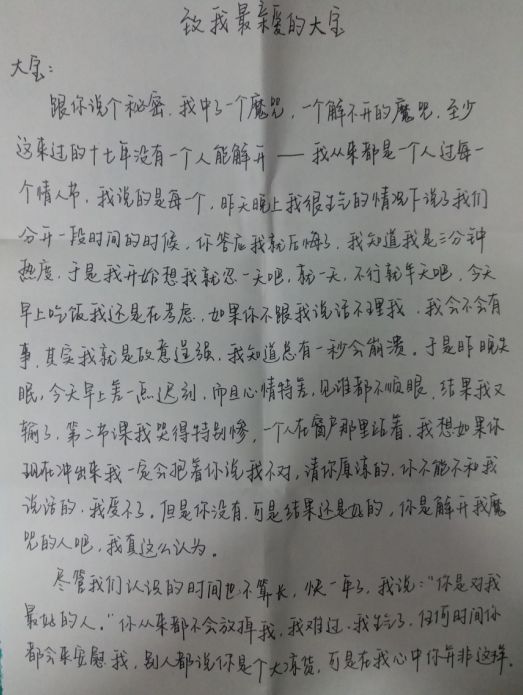 致我最亲爱的大宝
大宝：
跟你说个秘密，我中了一个魔咒，一个解不开的魔咒，至少
这来过的十七年没有一个人能解开——我从来都是一个人过每一
个情人节，我说的是每一个，昨天晚上我很生气的情况下说了我们
分开一段时间的时候，你答应我就后悔了，我知道我是三分钟
热度，于是我开始想我就忍一天吧，就一天，不行就半天吧，今天
早上吃饭我还是在考虑，如果你不跟我说话不理我，我会不会有
事，其实我就是故意逞强，我知道总有一秒会崩溃。于是昨晚失
眠，今天早上差一点迟到，而且心情特差，见谁都不顺眼，结果我又
输了，第二节课我哭得特别惨，一个人在窗户那里站着，我想如果你
现在冲出来我一定会抱着你说我不对，请你原谅的，你不能不和我
说话的，我受不了。但是你没有，可是结果还是好的，你是解开我魔
咒的人吧，我真这么认为。
尽管我们认识的时间也不算长，快一年了，我说：“你是对我
最好的人。”你从来都不会放掉我，我难过，我生气了，任何时间你
都会来安慰我，别人都说你是个大冻货，可是在我心中你并非这样。